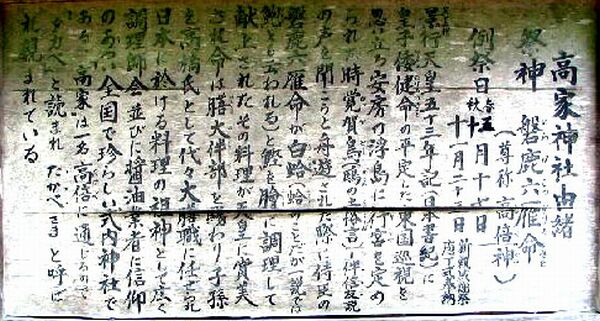 高家神社由緒
祭神 磐鹿六雁命
(尊称 高倍神)
例祭日 春 五月十七日
秋 十月十七日
十一月二十三日
景行天皇五十三年記(日本書紀)に
皇子倭健命の平定した東国巡視を
思い立ち安房の浮島に行宮を定め
られた時覚賀鳥
の声を聞こうと舟遊された際に侍臣の
磐鹿六雁命が白蛤(蛤のことだが一説では
鮑とも云われる)と鰹を膾に調理して
献上されたその料理が天皇に賞美
され命は膳大伴部を賜わり子孫
を高橋氏として代々大膳職に任ぜ
日本に於ける料理の祖神として広く
調理師会並びに醤油業者に信仰
のあつい全国で珍らしい式内神社で
ある 高家は一名高倍に通じるので
たかべと読まれ たかべさまと呼ば
れ親まれている